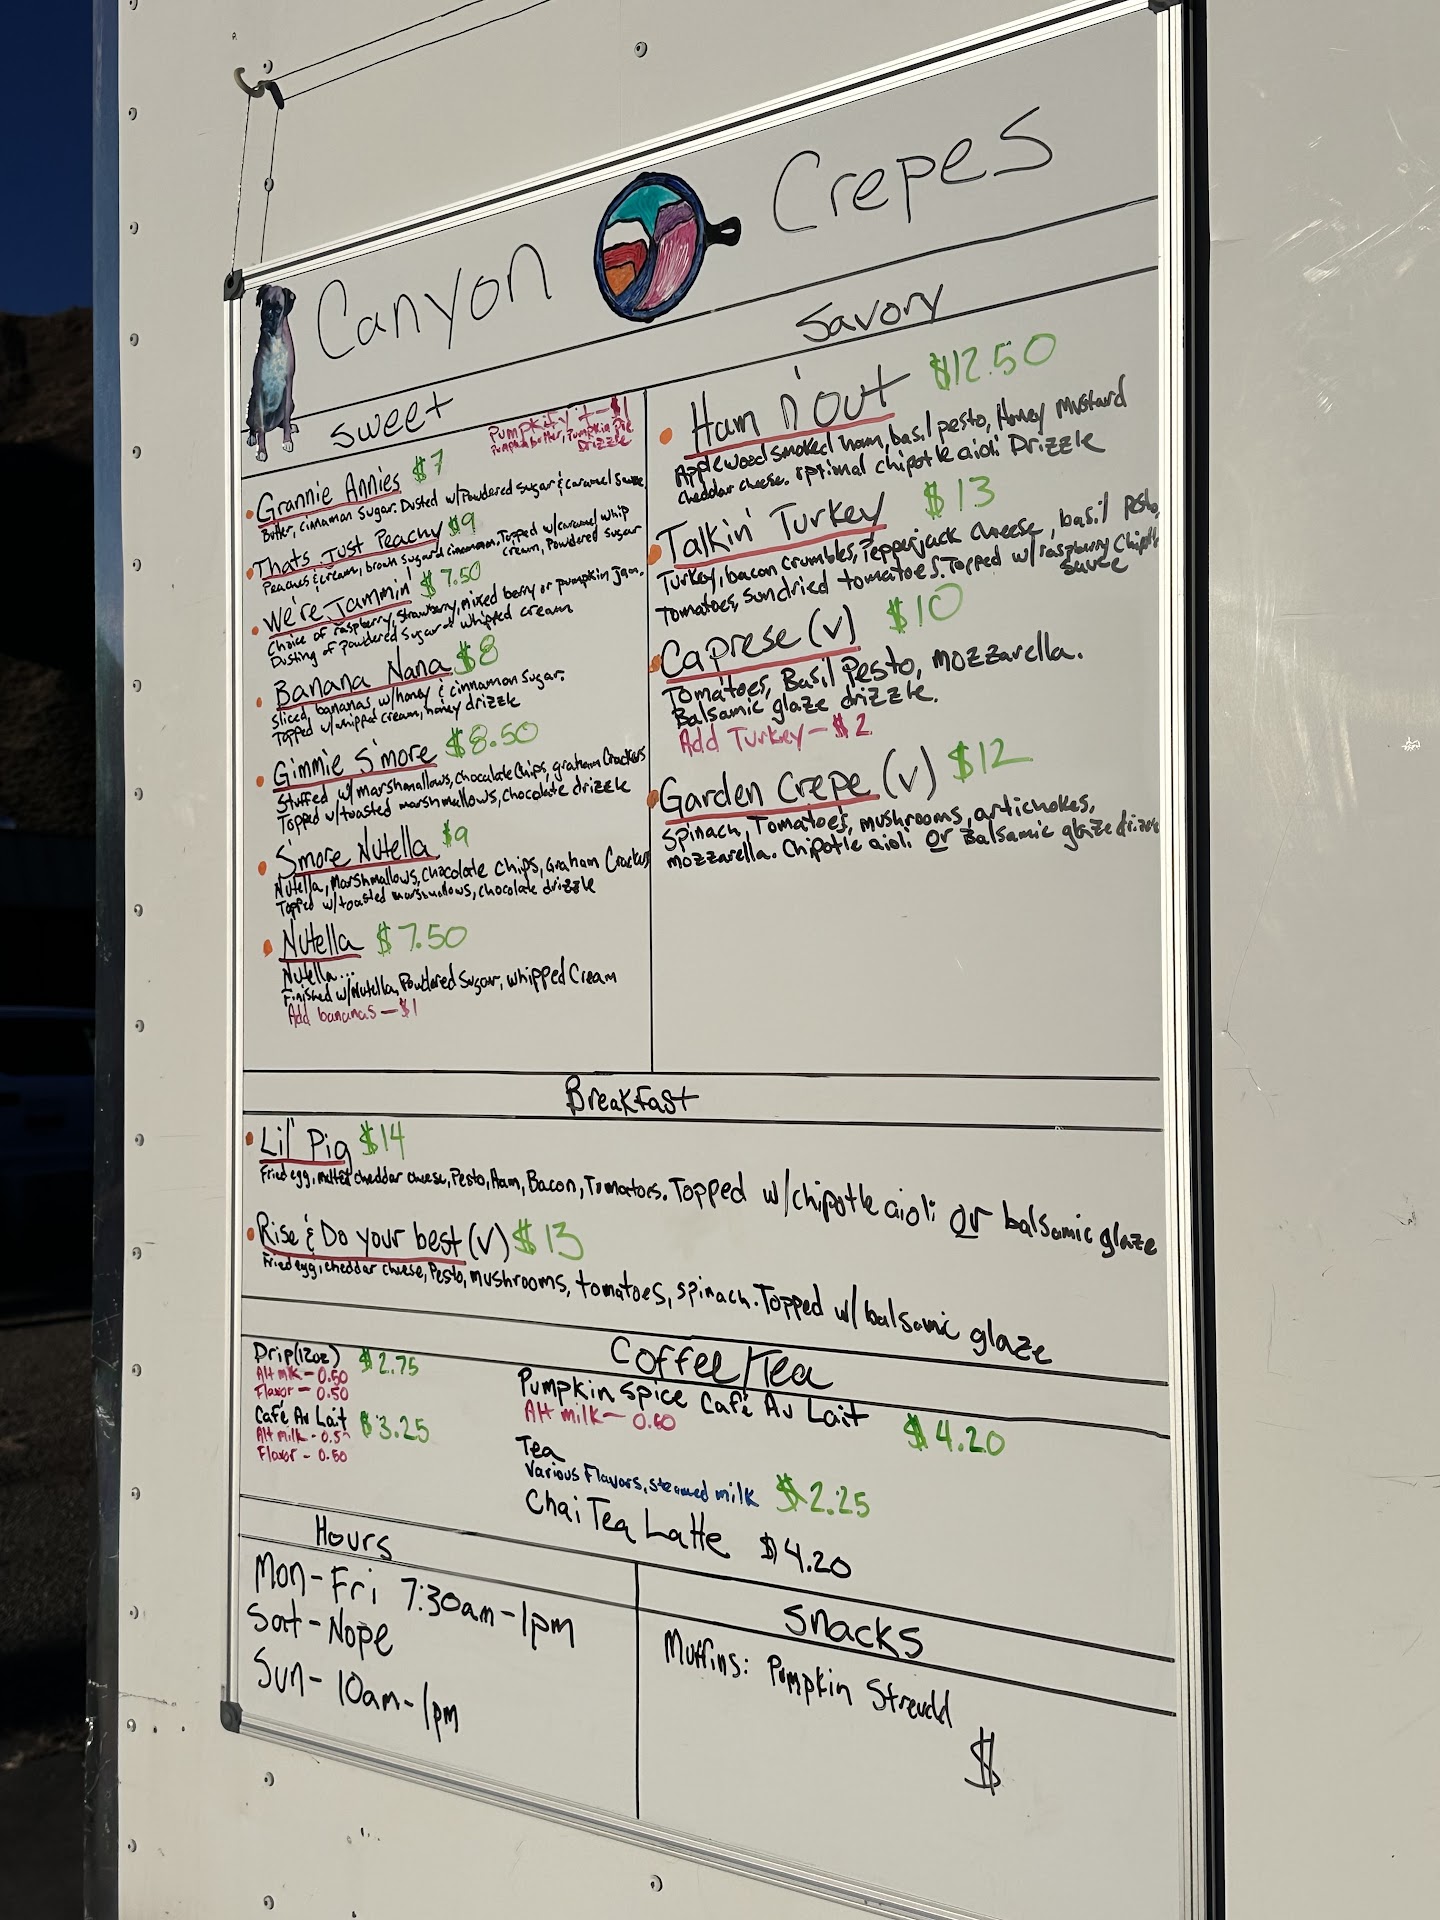 Canyon Crepes
Sweet
Pumpkify it - $1
Pumpkin butter, Pumpkin Pie
Drizzle
Grannie Annies $7
Butter, cinnamon sugar. Dusted w/Powdered sugar & caramel sauce
Thats Just Peachy $9
Peaches & cream, brown sugar & cinnamon, Topped w/caramel whip
cream, Powdered sugar
We're Jammin' $7.50
Choice of raspberry, strawberry, mixed berry or pumpkin jam.
Dusting of powdered sugar + whipped cream
Banana Nana $8
Sliced bananas, w/honey & cinnamon sugar.
Topped w/whipped cream, honey drizzle
Gimmie S'more $8.50
Stuffed w/marshmallows, chocolate chips, graham crackers
Topped w/toasted marshmallows, chocolate drizzle
S'more Nutella $9
Nutella, Marshmallows, Chocolate Chips, Graham Crackers
Topped w/toasted marshmallows, chocolate drizzle
Nutella $7.50
Nutella...
Finished w/Nutella, Powdered Sugar, whipped Cream
Add bananas - $1
Savory
Ham n' Out $12.50
Applewood smoked ham, basil pesto, Honey Mustard
cheddar cheese. optimal chipotle aioli Drizzle
Talkin' Turkey $13
Turkey, bacon crumbles, Pepperjack cheese, basil pesto,
Tomatoes, sundried tomatoes. Topped w/raspberry Chipotle
sauce
Caprese (v) $10
Tomatoes, Basil Pesto, mozzarella.
Balsamic glaze drizzle.
Add Turkey - $2
Garden Crepe (v) $12
Spinach, Tomatoes, mushrooms, artichokes,
mozzarella. Chipotle aioli or Balsamic glaze drizzle
Breakfast
Lil' Pig $14
Fried egg, melted cheddar cheese, Pesto, Ham, Bacon, Tomatoes. Topped w/chipotle aioli or balsamic glaze
Rise & Do your best (v) $13
Fried egg, cheddar cheese, Pesto, mushrooms, tomatoes, spinach. Topped w/balsamic glaze
Coffee/Tea
Drip (12oz) $2.75
Alt milk - 0.50
Flavor - 0.50
Café Au Lait $3.25
Alt milk - 0.5
Flavor - 0.50
Pumpkin Spice Café Au Lait $4.20
Alt milk - 0.60
Tea
Various Flavors, steamed milk $2.25
Chai Tea Latte $4.20
Hours
Mon-Fri 7:30am-1pm
Sat-Nope
Sun-10am-1pm
Snacks
Muffins: Pumpkin
$